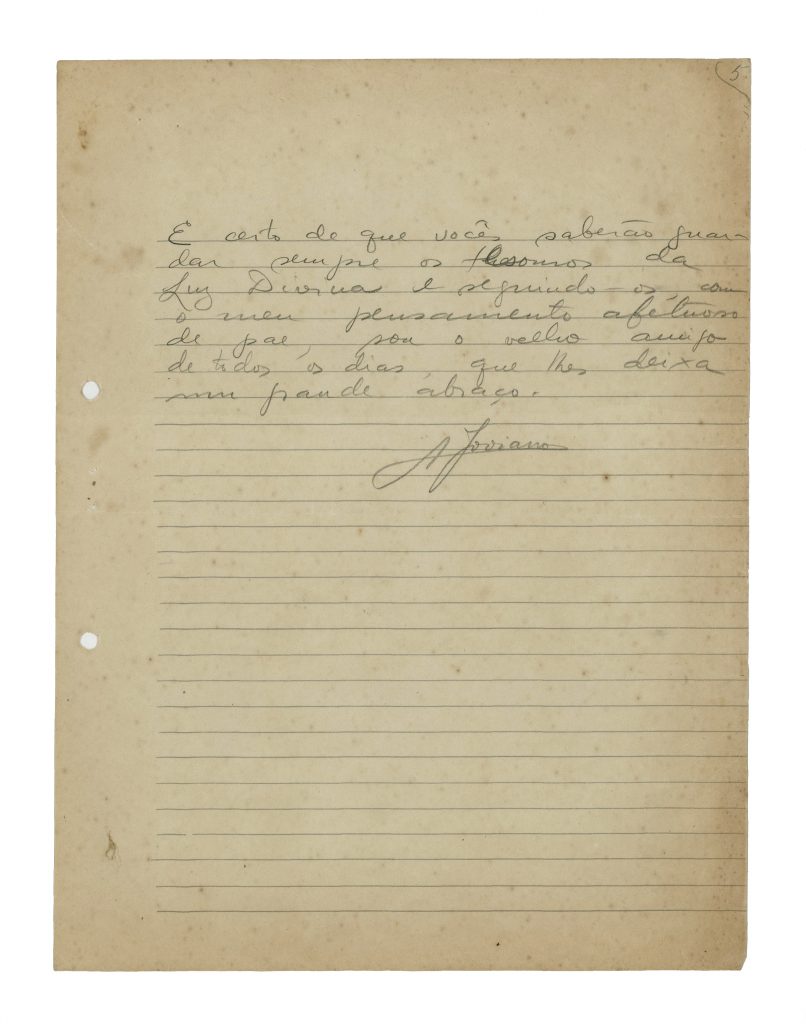 5
E certo de que vocês saberão guar-
dar sempre os thesouros da
Luz Divina e seguindo-os, com
o meu pensamento afétuoso
de pae, sou o velho amigo
de todos os dias, que lhes deixa
um grande abraço.
A Joviano